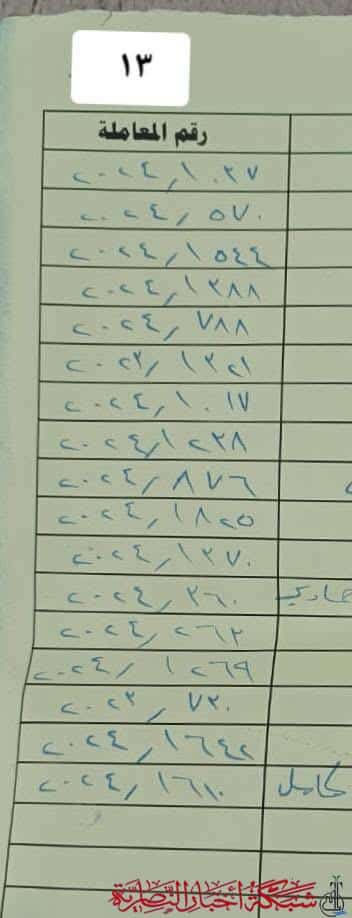 ١٣
رقم المعاملة
٢٠٢٤/١٠٣٧
٢٠٢٤/٥٧٠
٢٠٢٤/١٥٤٤
٢٠٢٤/١٣٨٨
٢٠٢٤/٧٨٨
٢٠٢٣/١٣٢١
٢٠٢٤/١٠١٧
٢٠٢٤/١٢٣٨
٢٠٢٤/٨٧٦
٢٠٢٤/١٨٢٥
٢٠٢٤/١٣٧٠
٢٠٢٤/٣٦٠
٢٠٢٤/٢٦٣
٢٠٢٤/١٢٦٩
٢٠٢٣/٧٣٠
٢٠٢٤/١٦٤٢
٢٠٢٤/١٦١٠ كامل
شبكة أخبار الناصرية